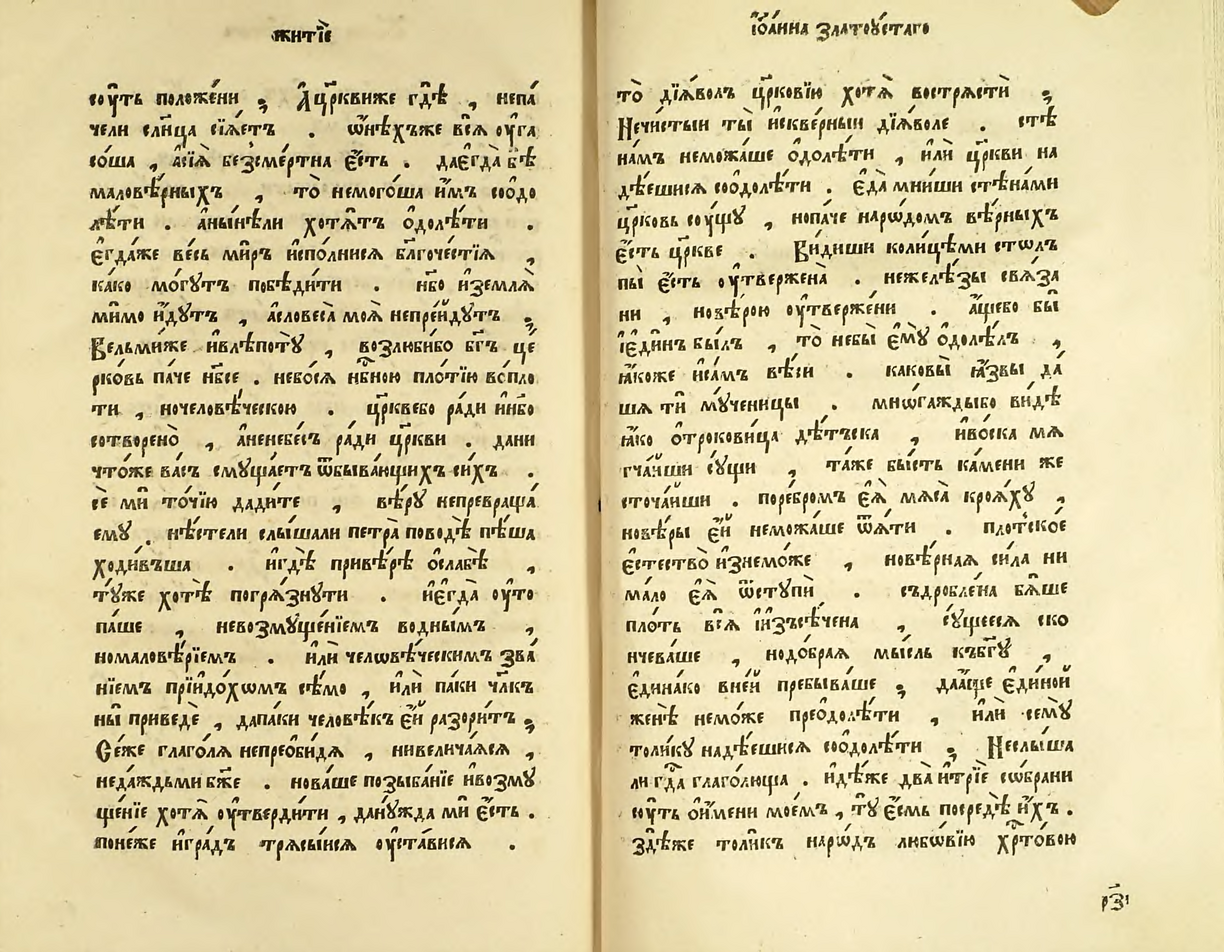 житїѐ
сꙋ́ть положе́ни ; А҆ цр҃квиже гдѣ̀ , непа́
чели слн҃ца сїѧ́етъ . ѡ҆нѣ́хъже всѧ̀ ᲂу҆га
со́ша , а҆сїѧ̀ безсме́ртна є҆́сть . даєгда̀ бѣ̀
маловѣ́рныхъ , то̀ немого́ша и҆̀мъ соѡдо
лѣ́ти . а҆ны́нѣли хотѧ́тъ ѻ҆долѣ́ти .
є҆гда́же весь ми́ръ и҆спо́лнисѧ бл҃гоче́стїѧ ,
ка́ко мо́гꙋтъ побѣ́дити . нб҃о и҆землѧ̀
ми́мо и҆́дꙋтъ , а҆словеса̀ моѧ̀ непре́йдꙋтъ ;
Вельми́же и҆влѣ́потꙋ , возлю́бибо бг҃ъ це́
рковь па́че нб҃се . небосѧ̀ нбⷭ҇ною пло́тїю вопло
тѝ , ночеловѣ́ческою . цр҃квебо ра́ди и҆нб҃о
сотворено̀ , а҆ненебе́съ ра́ди цр҃кви . дани
что́же ва́съ смꙋща́етъ ѿбыва́ющихъ си́хъ .
се́ ми то́чїю дади́те , вѣ́рꙋ непревраща́
емꙋ . нѣ́стели слы́шали петра̀ поводѣ̀ пѣ́ша
ходи́въша . и҆гдѣ̀ привѣ́рѣ ѻ҆слабѣ̀ ,
тꙋ́же хотѣ̀ погрѧ́знꙋти . и҆єгда̀ ᲂу҆то
па́ше , невозмꙋще́нїемъ во́днымъ ,
номаловѣ́рїемъ . и҆лѝ челѡвѣ́ческимъ зва́
нїемъ прїидо́хѡмъ сѣ́мо , и҆лѝ па́ки чл҃къ
ны̀ приведѐ , дапа́ки человѣ́къ є҆й разори́тъ ;
Се́же глаго́лѧ непреоби́дѧ , нивелича́ѧсѧ ,
неда́ждьми бж҃е . нова́ше позыба́нїе и҆возмꙋ
ще́нїе хотѧ̀ ᲂу҆тверди́ти , данꙋ́жда мѝ є҆́сть .
поне́же и҆гра́дъ трѧсы́исѧ ᲂу҆ста́висѧ .
і҆ѡа́нна златоꙋ́стаго
то̀ дїѧ́волъ цр҃ковїю хотѧ̀ востра́сти ;
Нечи́стыи ты̀ и҆скве́рныи дїѧ́воле . стѣ
на́мъ неможа́ше ѻ҆долѣ́ти , и҆лѝ цр҃кви на
дѣ́ешисѧ соѡдолѣ́ти . є҆да̀ мни́ши стѣна́ми
цр҃ковь сꙋ́щꙋ , нопа́че наро́дѡмъ вѣ́рныхъ
є҆́сть цр҃кве . Ви́диши коли́цѣми стѡлъ
пы̀ є҆́сть ᲂу҆твержена̀ . нежелѣ́зы свѧ́за
ни , новѣ́рою ᲂу҆твержени . а҆́щебо бы̀
і҆еди́нъ бы́лъ , то небы̀ є҆мꙋ̀ ѻ҆долѣ́лъ ,
ꙗ҆́коже и҆са́мъ вѣ́си . каковы̀ ꙗ҆́звы да́
шѧ тѝ мꙋ́ченицы . мно́гаждыбо ви́дѣ
ꙗ҆́ко ѻ҆трокови́ца дѣ́тьска , и҆во́ска мѧ
гча́иши сꙋ́щи , та́же бы́сть ка́мени же
сточа́иши . поребро́мъ є҆ѧ̀ мѧ́са кроѧ́хꙋ ,
новѣ́ры є҆́й неможа́ше ѿѧ́ти . пло́тское
є҆стество̀ и҆знемо́же , новѣ́рнаѧ си́ла ни
ма́ло є҆ѧ̀ ѿстꙋпѝ . съдробле́на бѧ́ше
пло́ть всѧ̀ и҆изъсѣ́чена , сꙋ́щеесѧ ско
нчева́ше , нодо́браѧ мы́сль къбг҃ꙋ ,
є҆дина́ко вне́й пребыва́ше ; даа́ще є҆ди́ной
женѣ̀ немо́же преодолѣ́ти , и҆лѝ семꙋ̀
толи́кꙋ надѣ́ешисѧ соѡдолѣ́ти ; Неслы́ша
ли гдⷭ҇а глаго́люща . и҆дѣ́же два̀ и҆трїѐ со́брани
сꙋ́ть ѻ҆и҆́мени моемъ , тꙋ̀ є҆́смь посредѣ̀ и҆́хъ .
здѣ́же толи́къ наро́дъ любо́вїю хрⷭ҇то́вою
р҃зі